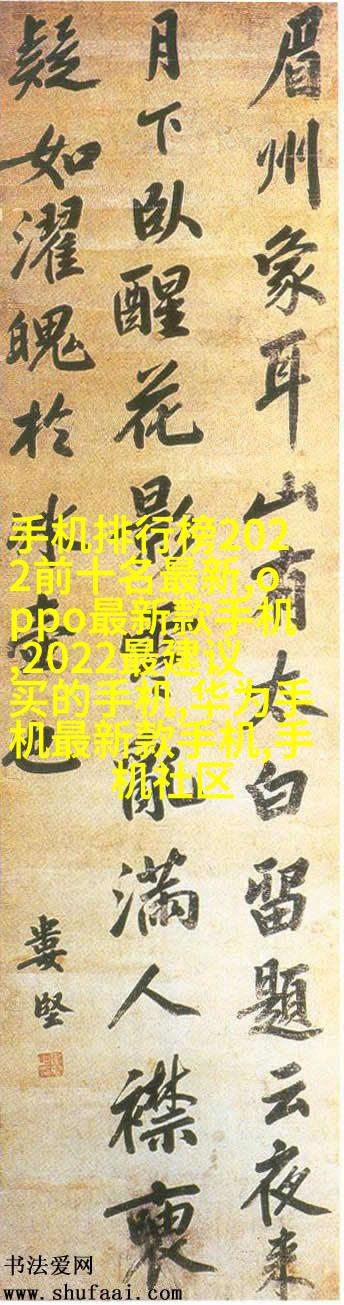 眉州象耳山有太白留題云夜来
月下臥醒花影亂滿人襟
疑如濯魄於冰也
婁堅
手机排行榜202
2前十名最新,o
ppo最新款手机
,2022最建议
买的手机,华为手
机最新款手机,手
机社区
书法爱网
www.shufaai.com